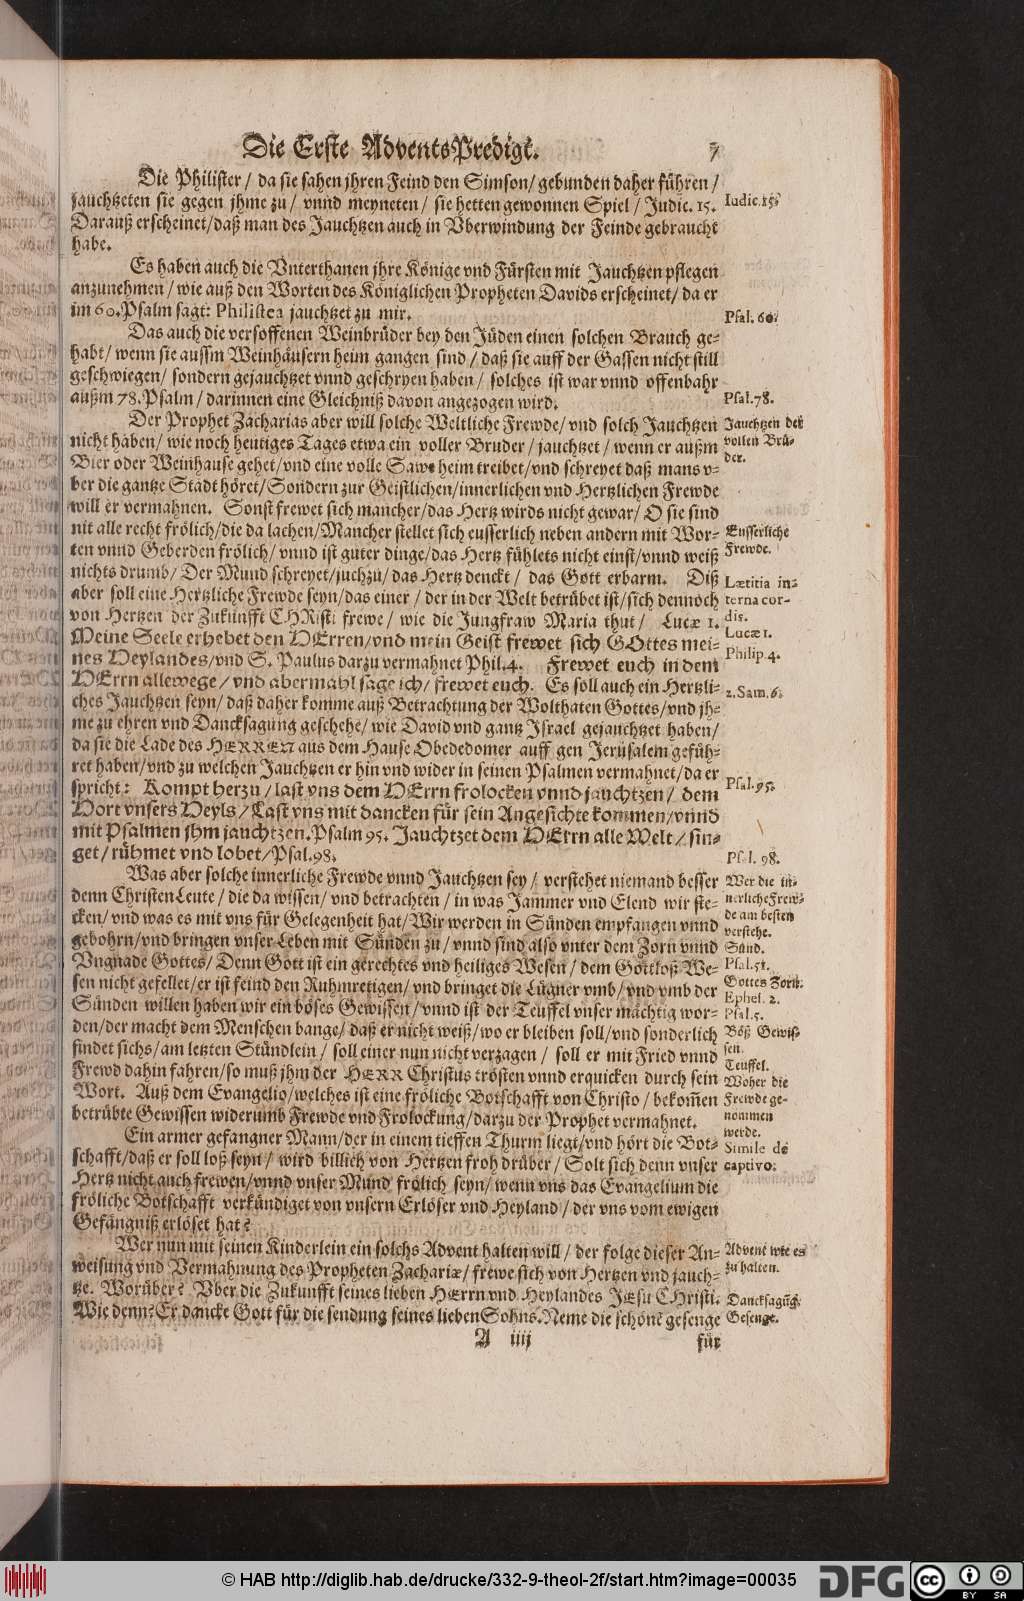 Die Erste AdventsPredigt. 7
Die Philister / da sie sahen jhren Feind den Simson / gebunden daher führen /
jauchtzeten sie gegen jhme zu / vnnd meyneten / sie hetten gewonnen Spiel / Judic. 15.
Darauß erscheinet / daß man des Jauchtzen auch in Vberwindung der Feinde gebraucht
habe.
Es haben auch die Vnterthanen jhre Könige vnd Fürsten mit Jauchtzen pflegen
anzunehmen / wie auß den Worten des Königlichen Propheten Davids erscheinet / da er
im 60. Psalm sagt: Philistea jauchtzet zu mir.
Das auch die versoffenen Weinbrüder bey den Jüden einen solchen Brauch ge-
habt / wenn sie aussm Weinhäusern heim gangen sind / daß sie auff der Gassen nicht still
geschwiegen / sondern gejauchtzet vnnd geschryen haben / solches ist war vnnd offenbahr
außm 78. Psalm / darinnen eine Gleichniß davon angezogen wird.
Der Prophet Zacharias aber will solche Weltliche Frewde / vnd solch Jauchtzen
nicht haben / wie noch heutiges Tages etwa ein voller Bruder / jauchtzet / wenn er außm
Bier oder Weinhause gehet / vnd eine volle Sawe heim treibet / vnd schreyet daß mans v-
ber die gantze Stadt höret / Sondern zur Geistlichen / innerlichen vnd Hertzlichen Frewde
will er vermahnen. Sonst frewet sich mancher / das Hertz wirds nicht gewar / O sie sind
nit alle recht frölich / die da lachen / Mancher stellet sich eusserlich neben andern mit Wor-
ten vnnd Geberden frölich / vnnd ist guter dinge / das Hertz fühlets nicht einst / vnnd weiß
nichts drumb / Der Mund schreyet / juchzu / das Hertz denckt / das Gott erbarm. Diß
aber soll eine Hertzliche Frewde seyn / das einer / der in der Welt betrübet ist / sich dennoch
von Hertzen der Zukunfft CHRisti frewe / wie die Jungfraw Maria thut / Lucæ 1.
Meine Seele erhebet den HErren / vnd mein Geist frewet sich GOttes mei-
nes Heylandes / vnd S. Paulus darzu vermahnet Phil. 4. Frewet euch in dem
HErrn allewege / vnd abermahl sage ich / frewet euch. Es soll auch ein Hertzli-
ches Jauchtzen seyn / daß daher komme auß Betrachtung der Wolthaten Gottes / vnd jh-
me zu ehren vnd Dancksagung geschehe / wie David vnd gantz Israel gejauchtzet haben /
da sie die Lade des HERREN aus dem Hause Obededomer auff gen Jerusalem gefüh-
ret haben / vnd zu welchen Jauchtzen er hin vnd wider in seinen Psalmen vermahnet / da er
spricht: Kompt herzu / last vns dem HErrn frolocken vnnd jauchtzen / dem
Hort vnsers Heyls / Last vns mit dancken für sein Angesichte kommen / vnnd
mit Psalmen jhm jauchtzen. Psalm 95. Jauchtzet dem HErrn alle Welt / sin-
get / rühmet vnd lobet / Psal. 98.
Was aber solche innerliche Frewde vnnd Jauchtzen sey / verstehet niemand besser
denn ChristenLeute / die da wissen / vnd betrachten / in was Jammer vnd Elend wir ste-
cken / vnd was es mit vns für Gelegenheit hat / Wir werden in Sünden empfangen vnnd
gebohrn / vnd bringen vnser Leben mit Sünden zu / vnnd sind also vnter dem Zorn vnnd
Vngnade Gottes / Denn Gott ist ein gerechtes vnd heiliges Wesen / dem Gottloß We-
sen nicht gefellet / er ist feind den Ruhmretigen / vnd bringet die Lügner vmb / vnd vmb der
Sünden willen haben wir ein böses Gewissen / vnnd ist der Teuffel vnser mächtig wor-
den / der macht dem Menschen bange / daß er nicht weiß / wo er bleiben soll / vnd sonderlich
findet sichs / am letzten Stündlein / soll einer nun nicht verzagen / soll er mit Fried vnnd
Frewd dahin fahren / so muß jhm der HERR Christus trösten vnnd erquicken durch sein
Wort. Auß dem Evangelio / welches ist eine fröliche Botschafft von Christo / bekom̃en
betrübte Gewissen widerumb Frewde vnd Frolockung / darzu der Prophet vermahnet.
Ein armer gefangner Mann / der in einem tieffen Thurm liegt / vnd hört die Bot-
schafft / daß er soll loß seyn / wird billich von Hertzen froh drüber / Solt sich denn vnser
Hertz nicht auch frewen / vnnd vnser Mund frölich seyn / wenn vns das Evangelium die
fröliche Botschafft verkündiget von vnsern Erlöser vnd Heyland / der vns vom ewigen
Gefängniß erlöset hat?
Wer nun mit seinen Kinderlein ein solchs Advent halten will / der folge dieser An-
weisung vnd Vermahnung des Propheten Zachariæ / frewe sich von Hertzen vnd jauch-
tze. Worüber? Vber die Zukunfft seines lieben HErrn vnd Heylandes JEsu CHristi.
Wie denn? Er dancke Gott für die sendung seines lieben Sohns. Neme die schöne gesenge
A iiij für
Iudic. 15.
Psal. 60.
Psal. 78.
Jauchtzen der
vollen Brü-
der.
Eusserliche
Frewde.
Lætitia in-
terna cor-
dis.
Lucæ 1.
Philip. 4.
2. Sam. 6.
Psal. 95.
Psal. 98.
Wer die in-
nerliche Frew-
de am besten
verstehe.
Sünd.
Psal. 51.
Gottes Zorn.
Ephes. 2.
Psal. 5.
Böß Gewis-
sen.
Teuffel.
Woher die
Frewde ge-
nommen
werde.
Simile de
captivo.
Advent wie es
zu halten.
Dancksagũg.
Gesenge.
© HAB http://diglib.hab.de/drucke/332-9-theol-2f/start.htm?image=00035
DFG
cc BY SA